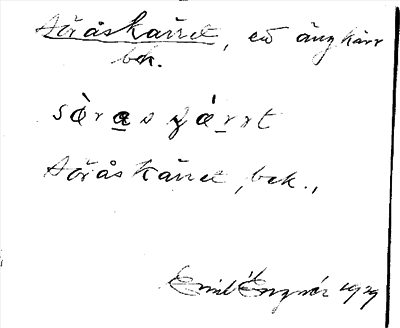 Söråskärret, en ängkärr
bek.
sὼras χárrt
Söråskärret, bek.,
Emil Engnér 1929